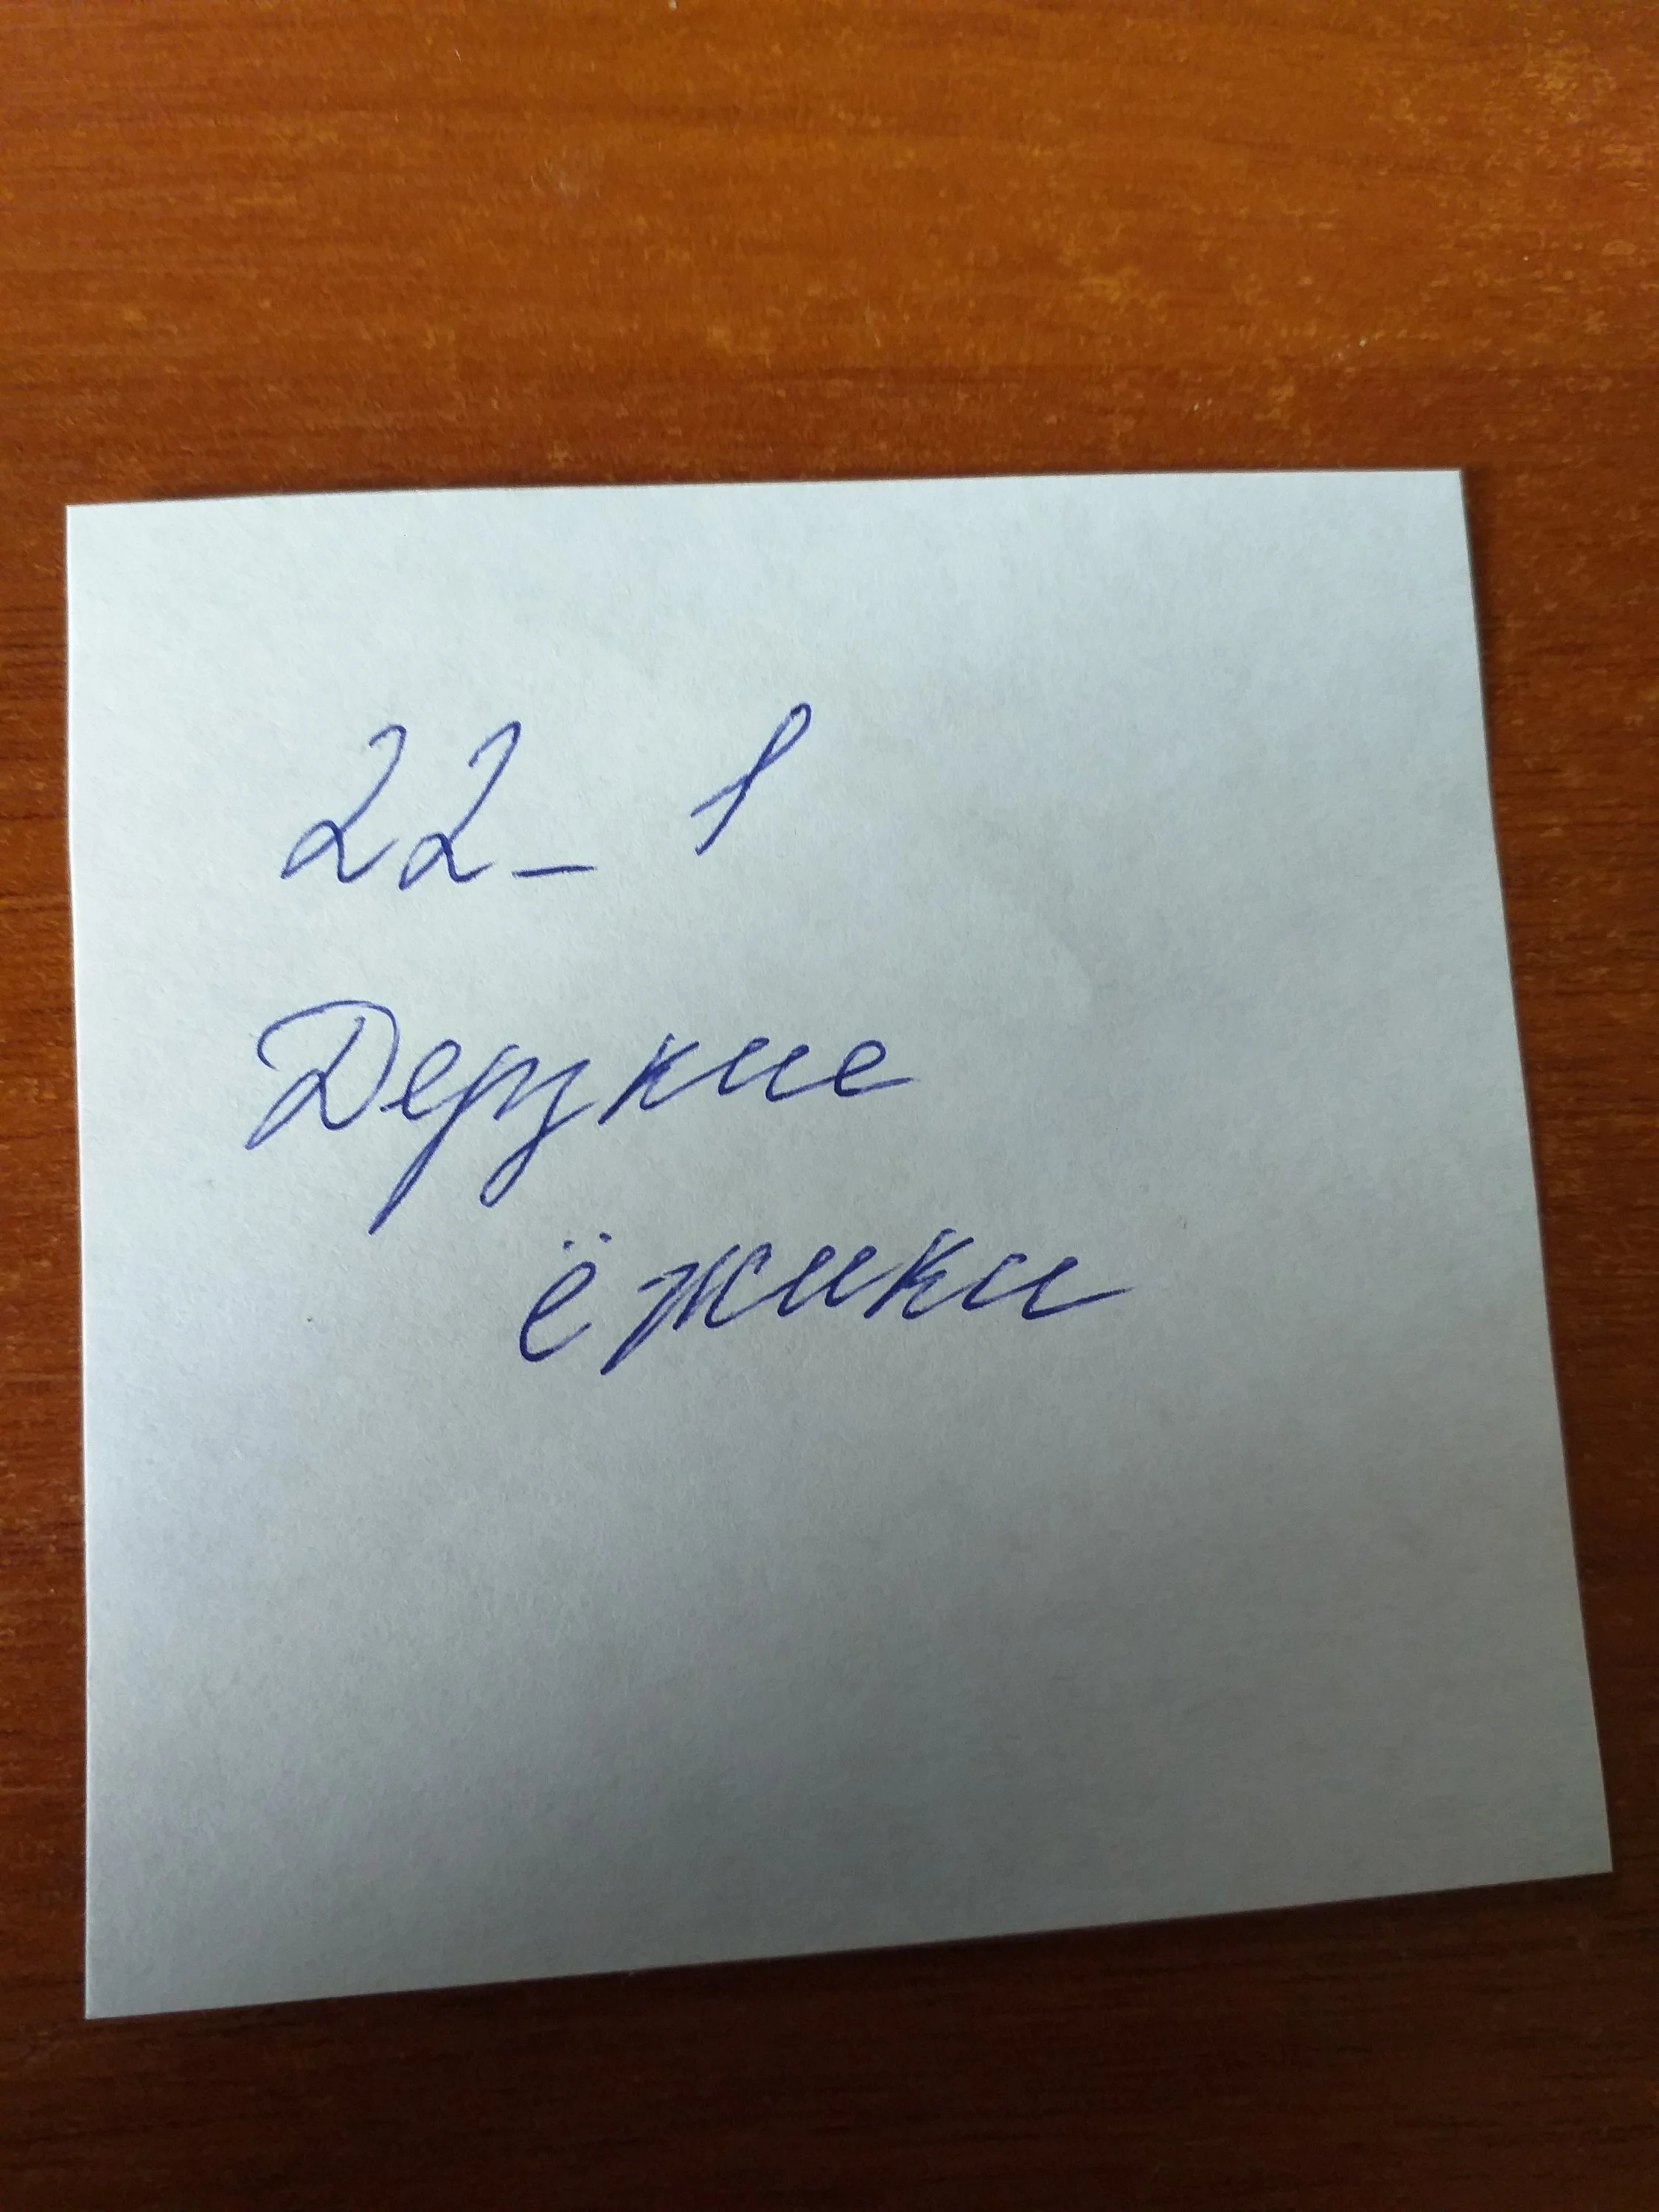 22_ 1
Дерзкие
ёжики